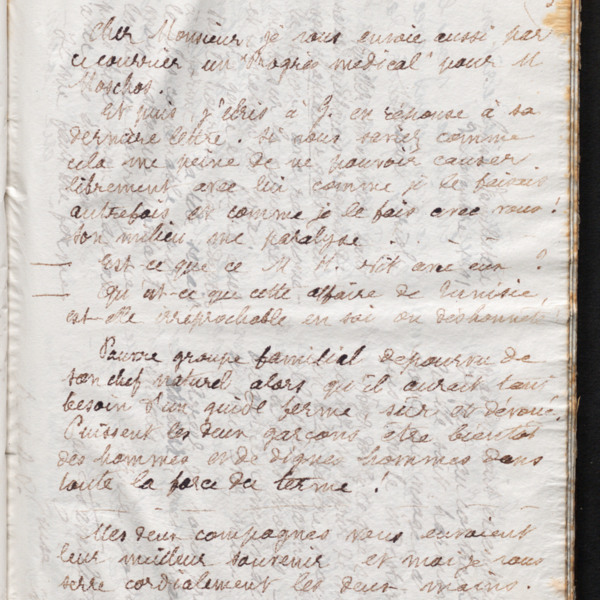 Cher Monsieur, je vous envoie aussi par
ce courrier un "Progrès médical" pour M
Moschos.
Et puis j'écris à J. en réponse à sa
dernière lettre. Si vous saviez comme
cela me peine de ne pouvoir causer
librement avec lui comme je le faisais
autrefois et comme je le fais avec vous!
Son milieu me paralyse . . -
Est-ce que ce M H. vit avec eux ?
Qu'est-ce que cette affaire de Tunisie,
est elle irréprochable en soi ou déshonnête
Pauvre groupe familial dépourvu de
son chef naturel alors qu'il aurait tant
besoin d'un guide ferme, sûr et dévoué.
Puissent les deux garçons être bientôt
des hommes et de dignes hommes dans
toute la force du terme !
Mes deux compagnes vous envoient
leur meilleur souvenir et moi je vous
serre cordialement les deux mains.